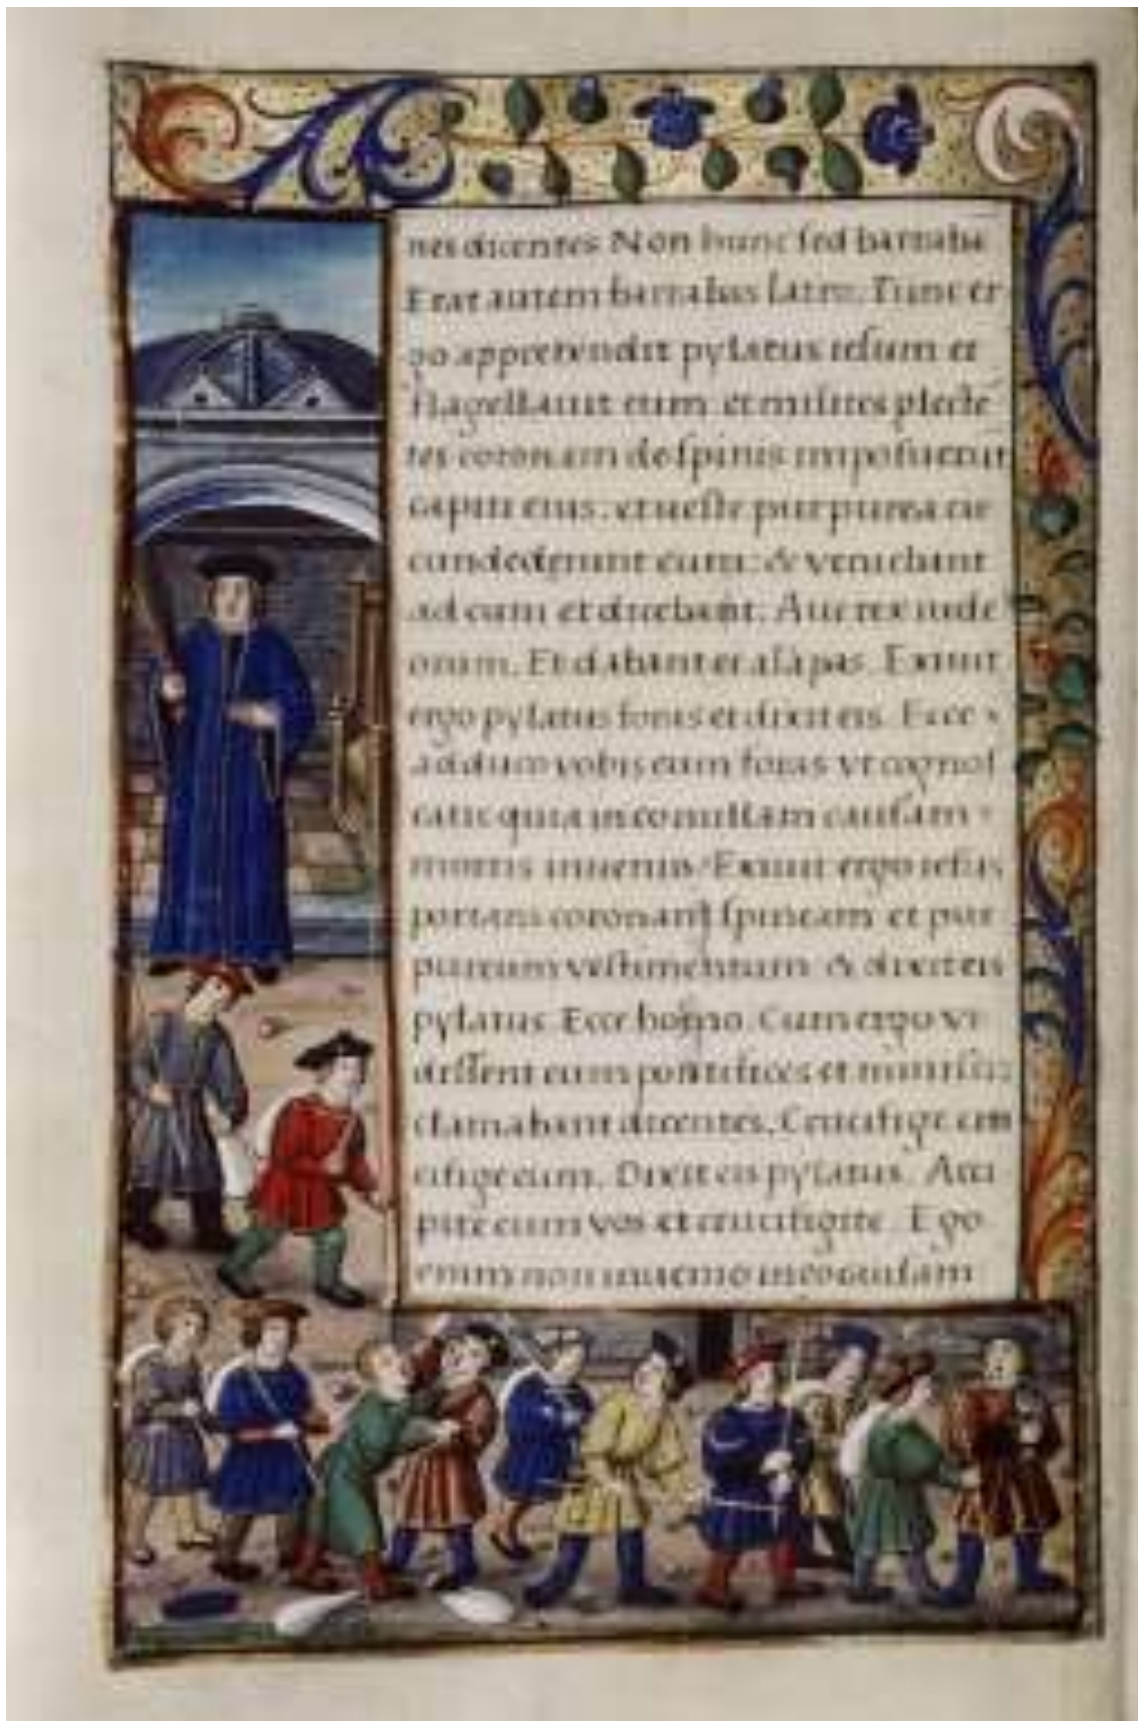 nes dicentes Non hunc sed barraba
Erat autem barrabas latro. Tunc er
go apprehendit pylatus iesum et
flagellauit eum et milites plecte
tes coronam de spinis imposuerut
capiti eius: et ueste purpurea cir
cundederunt eum: & veniebant
ad eum et dicebant. Aue rex iude
orum. Et dabant ei alapas. Exiuit
ergo pylatus foras et dixit eis. Ecce
adduco vobis eum foras vt cognos
catis quia in eo nullam causam
mortis inuenio. Exiuit ergo iesus
portans coronam spineam et pur
pureum vestimentum & dixit eis
pylatus. Ecce homo. Cum ergo vi
dissent eum pontifices et ministri
clamabant dicentes. Crucifige cru
cifige eum. Dixit eis pylatus. Acci
pite eum vos et crucifigite. Ego
enim non inuenio in eo causam